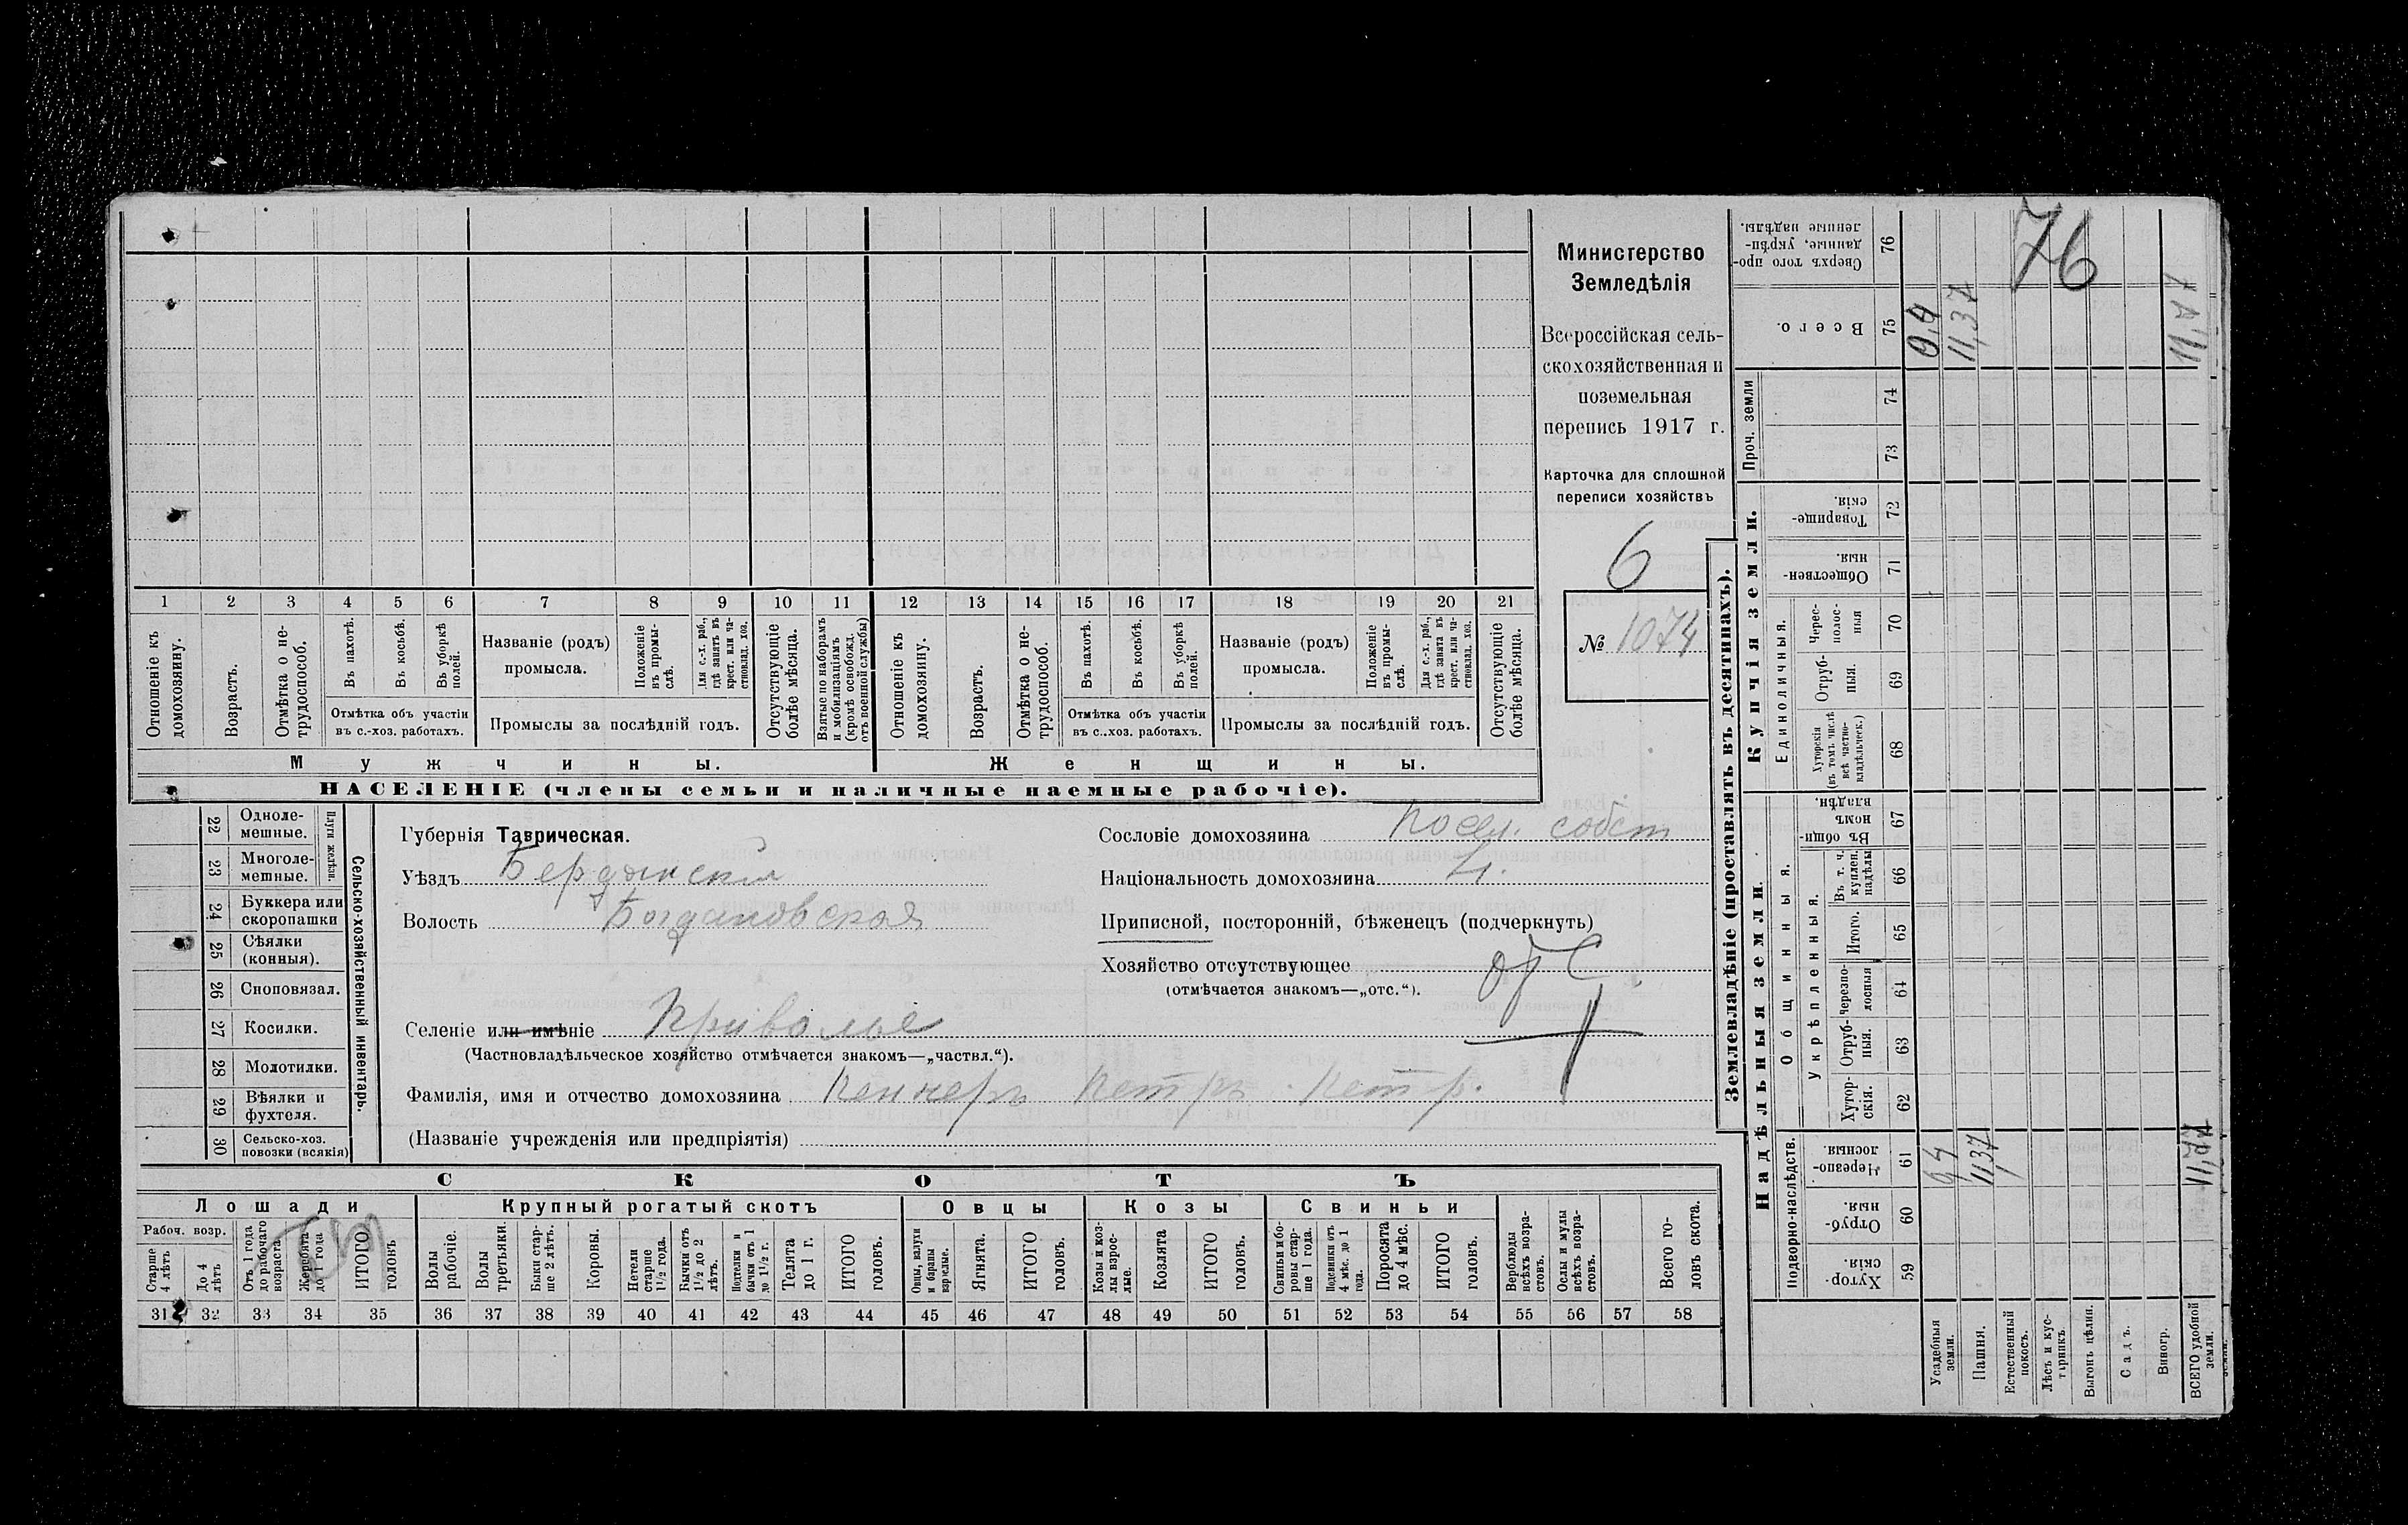 Министерство
Земледѣлія
Всероссійская сель-
скохозяйственная и
поземельная
перепись 1917 г.
Карточка для сплошной
переписи хозяйствъ
6
№ 1074
1 2 3 4 5 6 7 8 9 10 11 12 13 14 15 16 17 18 19 20 21
Отношеніе къ домохозяину.
Возрастъ.
Отмѣтка о не-трудоспособ.
Въ пахотѣ.
Въ косьбѣ.
Въ уборкѣ полей.
Отмѣтка объ участіи
въ с.-хоз. работахъ.
Названіе (родъ)
промысла.
Положеніе въ промы-слѣ.
Для с.-х. раб., гдѣ занятъ въ крест. или ча-стновлад. хоз.
Промыслы за послѣдній годъ.
Отсутствующіе болѣе мѣсяца.
Взятые по наборамъ и мобилизаціямъ (кромѣ освобожд. отъ военной службы)
Отношеніе къ домохозяину.
Возрастъ.
Отмѣтка о не-трудоспособ.
Въ пахотѣ.
Въ косьбѣ.
Въ уборкѣ полей.
Отмѣтка объ участіи
въ с.-хоз. работахъ.
Названіе (родъ)
промысла.
Положеніе въ промы-слѣ.
Для с.-х. раб., гдѣ занята въ крест. или ча-стновлад. хоз.
Промыслы за послѣдній годъ.
Отсутствующіе болѣе мѣсяца.
Мужчины. Женщины.
НАСЕЛЕНІЕ (члены семьи и наличные наемные рабочіе).
Сельско-хозяйственный инвентарь.
Плуги желѣзн.
22 Одноле-мешные.
23 Многоле-мешные.
24 Буккера или скоропашки
25 Сѣялки (конныя).
26 Сноповязал.
27 Косилки.
28 Молотилки.
29 Вѣялки и фухтеля.
30 Сельско-хоз. повозки (всякія)
Губернія Таврическая.
Уѣздъ Бердянскій
Волость Богдановская
Селеніе или имѣніе Приволье
(Частновладѣльческое хозяйство отмѣчается знакомъ—„частвл.“).
Фамилія, имя и отчество домохозяина Пеннеръ Петръ Петр.
(Названіе учрежденія или предпріятія)
Сословіе домохозяина посел. собст
Національность домохозяина Н.
Приписной, посторонній, бѣженецъ (подчеркнуть)
Хозяйство отсутствующее отс
(отмѣчается знакомъ—„отс.“).
СКОТЪ
Лошади Крупный рогатый скотъ Овцы Козы Свиньи
Рабоч. возр.
Старше 4 лѣтъ
До 4 лѣтъ
Отъ 1 года до рабочаго возраста
Жеребята до 1 года
ИТОГО головъ
Волы рабочіе.
Волы третьяки.
Быки стар-ше 2 лѣтъ.
Коровы.
Нетели старше 1½ года.
Бычки отъ 1½ до 2 лѣтъ.
Подтелки и бычки отъ 1 до 1½ г.
Телята до 1 г.
ИТОГО головъ.
Овцы, валухи и бараны взрослые.
Ягнята.
ИТОГО головъ.
Козы и коз-лы взрос-лые.
Козлята
ИТОГО головъ.
Свиньи и бо-ровы стар-ше 1 года.
Подсвинки отъ 4 мѣс. до 1 года.
Поросята до 4 мѣс.
ИТОГО головъ.
Верблюды всѣхъ возра-стовъ.
Ослы и мулы всѣхъ возра-стовъ.
Всего го-ловъ скота.
31 32 33 34 35 36 37 38 39 40 41 42 43 44 45 46 47 48 49 50 51 52 53 54 55 56 57 58
Землевладѣніе (проставлять въ десятинахъ).
Купчія земли.
Надѣльныя земли.
Сверхъ того про-данные, укрѣп-ленные надѣлы. 76
Всего. 75
Проч. земли 74
73
Товарище-скія. 72
Обществен-ныя. 71
Единоличныя.
Черес-полос-ныя 70
Отруб-ныя. 69
Хуторскія (въ томъ числѣ всѣ частно-владѣльческ.) 68
Общинныя.
Въ общи-номъ владѣн. 67
Укрѣпленныя.
Въ т. ч. куплен. надѣлы 66
Итого. 65
Черезпо-лосныя 64
Отруб-ныя. 63
Хутор-скія. 62
Подворно-наслѣдств.
Черезпо-лосныя 61
Отруб-ныя. 60
Хутор-скія. 59
Усадебныя земли.
Пашня.
Естественный покосъ.
Лѣсъ и кус-тарникъ
Выгонъ цѣлин.
Садъ.
Виногр.
ВСЕГО удобной земли.
76
11,37
11,37